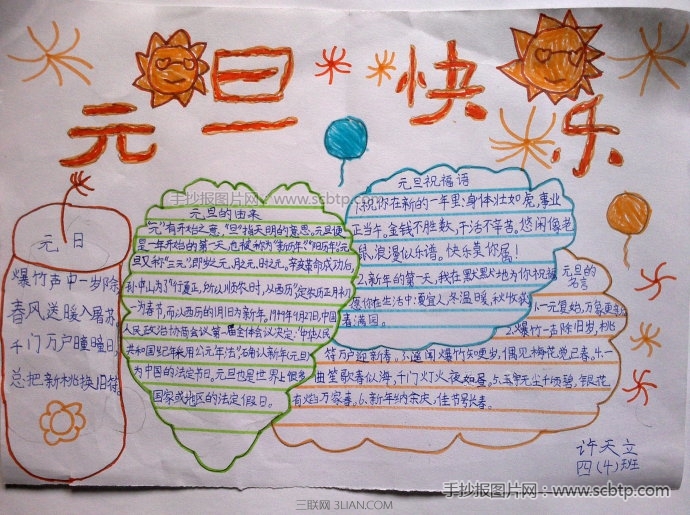 元旦快乐
手抄报图片网:www.scbtp.com
元日
爆竹声中一岁除
春风送暖入屠苏
千门万户曈曈日
总把新桃换旧符
元旦的由来
"元"有开始之意,"旦"指天明的意思。元旦便
是一年开始的第一天,也被称为"新历年""阳历年"。元
旦又称"三元",即岁之元、月之元、时之元。辛亥革命成功后,
孙中山为了"行夏正,所以顺农时,从西历"定农历正月初
一为春节,而以西历的1月1日为新年。1949年9月27日,中国
人民政治协商会议第一届全体会议决定:"中华人民
共和国纪年采用公元年法"
为中国的法定节日。元旦也是世界上很多
国家或地区的法定假日。
元旦祝福语
1.祝你在新的一年里:身体壮如虎,事业
正当午。金钱不胜数,干活不辛苦。悠闲像老
鼠,浪漫似乐谱。快乐莫你属!
2.新年的第一天,我在默默地为你祝福,
愿你在生活中:夏宜人,冬温暖,秋收获,
春满园。
元旦的
名言
1.一元复始,万象更新
2.爆竹一声除旧岁,桃
符万户迎新春。3.遥闻爆竹知更岁,偶见梅花觉已春。4.一
曲笙歌春似海,千门灯火夜如昼。5.玉宇无尘千顷碧,银花
有焰万家春。6.新年纳余庆,佳节号长春。
许天立
四(4)班
手抄报图片网:www.scbtp.com
三联网 3LIAN.COM